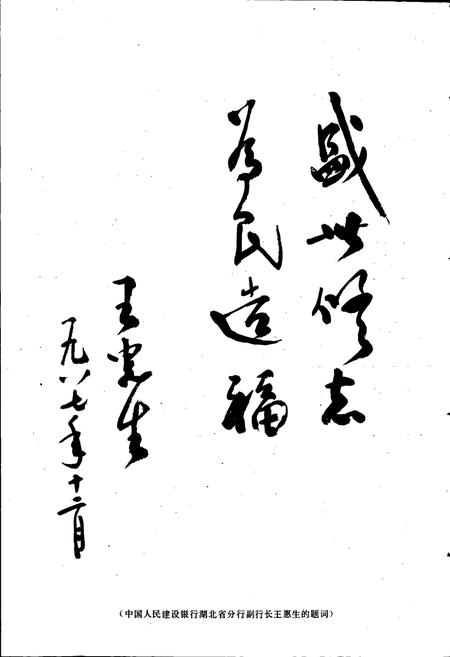 盛世修志
為民造福
王惠生
一九八七年十二月
（中国人民建设银行湖北省分行副行长王惠生的题词）